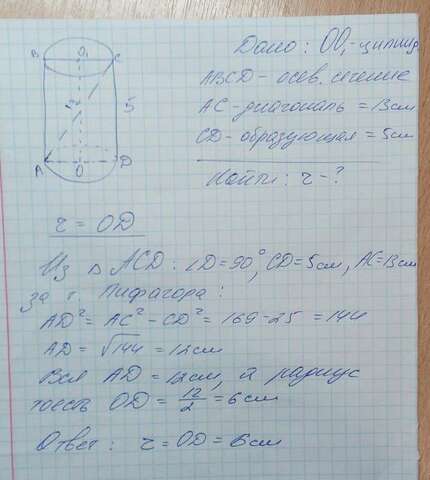 Дано: OO₁-цилинд
ABCD - осев. сечение
AC - диагональ = 13 см
CD - образующая = 5 см
Найти: r - ?
B O₁ C
13
5
A O D
r = OD
Из △ ACD: ∠D = 90°, CD = 5 см, AC = 13 см
за т. Пифагора:
AD² = AC² - CD² = 169 - 25 = 144
AD = √144 = 12 см
Вся AD = 12 см, а радиус
тоесть OD = 12/2 = 6 см
Ответ: r = OD = 6 см